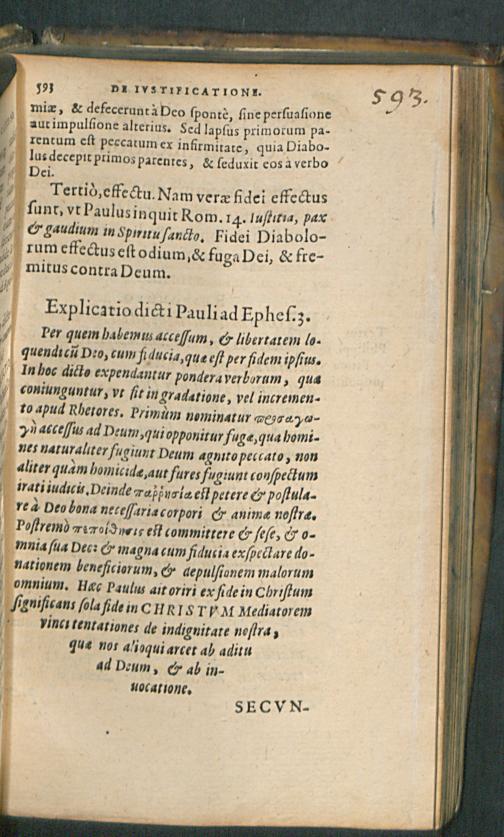 593 DE IVSTIFICATIONE. 593.
miæ, & defecerunt à Deo spontè, sine persuasione
aut impulsione alterius. Sed lapsus primorum pa-
rentum est peccatum ex infirmitate, quia Diabo-
lus decepit primos parentes, & seduxit eos à verbo
Dei.
Tertiò, effectu. Nam veræ fidei effectus
sunt, vt Paulus inquit Rom. 14. Iustitia, pax
& gaudium in Spiritu sancto. Fidei Diabolo-
rum effectus est odium, & fuga Dei, & fre-
mitus contra Deum.
Explicatio dicti Pauli ad Ephes. 3.
Per quem habemus accessum, & libertatem lo-
quendi cũ Deo, cum fiducia, quæ est per fidem ipsius.
In hoc dicto expendantur pondera verborum, quæ
coniunguntur, vt fit in gradatione, vel incremen-
to apud Rhetores. Primùm nominatur προσαγω-
γὴ accessus ad Deum, qui opponitur fugæ, qua homi-
nes naturaliter fugiunt Deum agnito peccato, non
aliter quàm homicidæ, aut fures fugiunt conspectum
irati iudicis. Deinde παῤῥησία est petere & postula-
re à Deo bona necessaria corpori & animæ nostræ.
Postremò πεποίθησις est committere & sese, & o-
mnia sua Deo: & magna cum fiducia exspectare do-
nationem beneficiorum, & depulsionem malorum
omnium. Hæc Paulus ait oriri ex fide in Christum
significans sola fide in CHRISTVM Mediatorem
vinci tentationes de indignitate nostra,
quæ nos alioqui arcet ab aditu
ad Deum, & ab in-
uocatione.
SECVN-